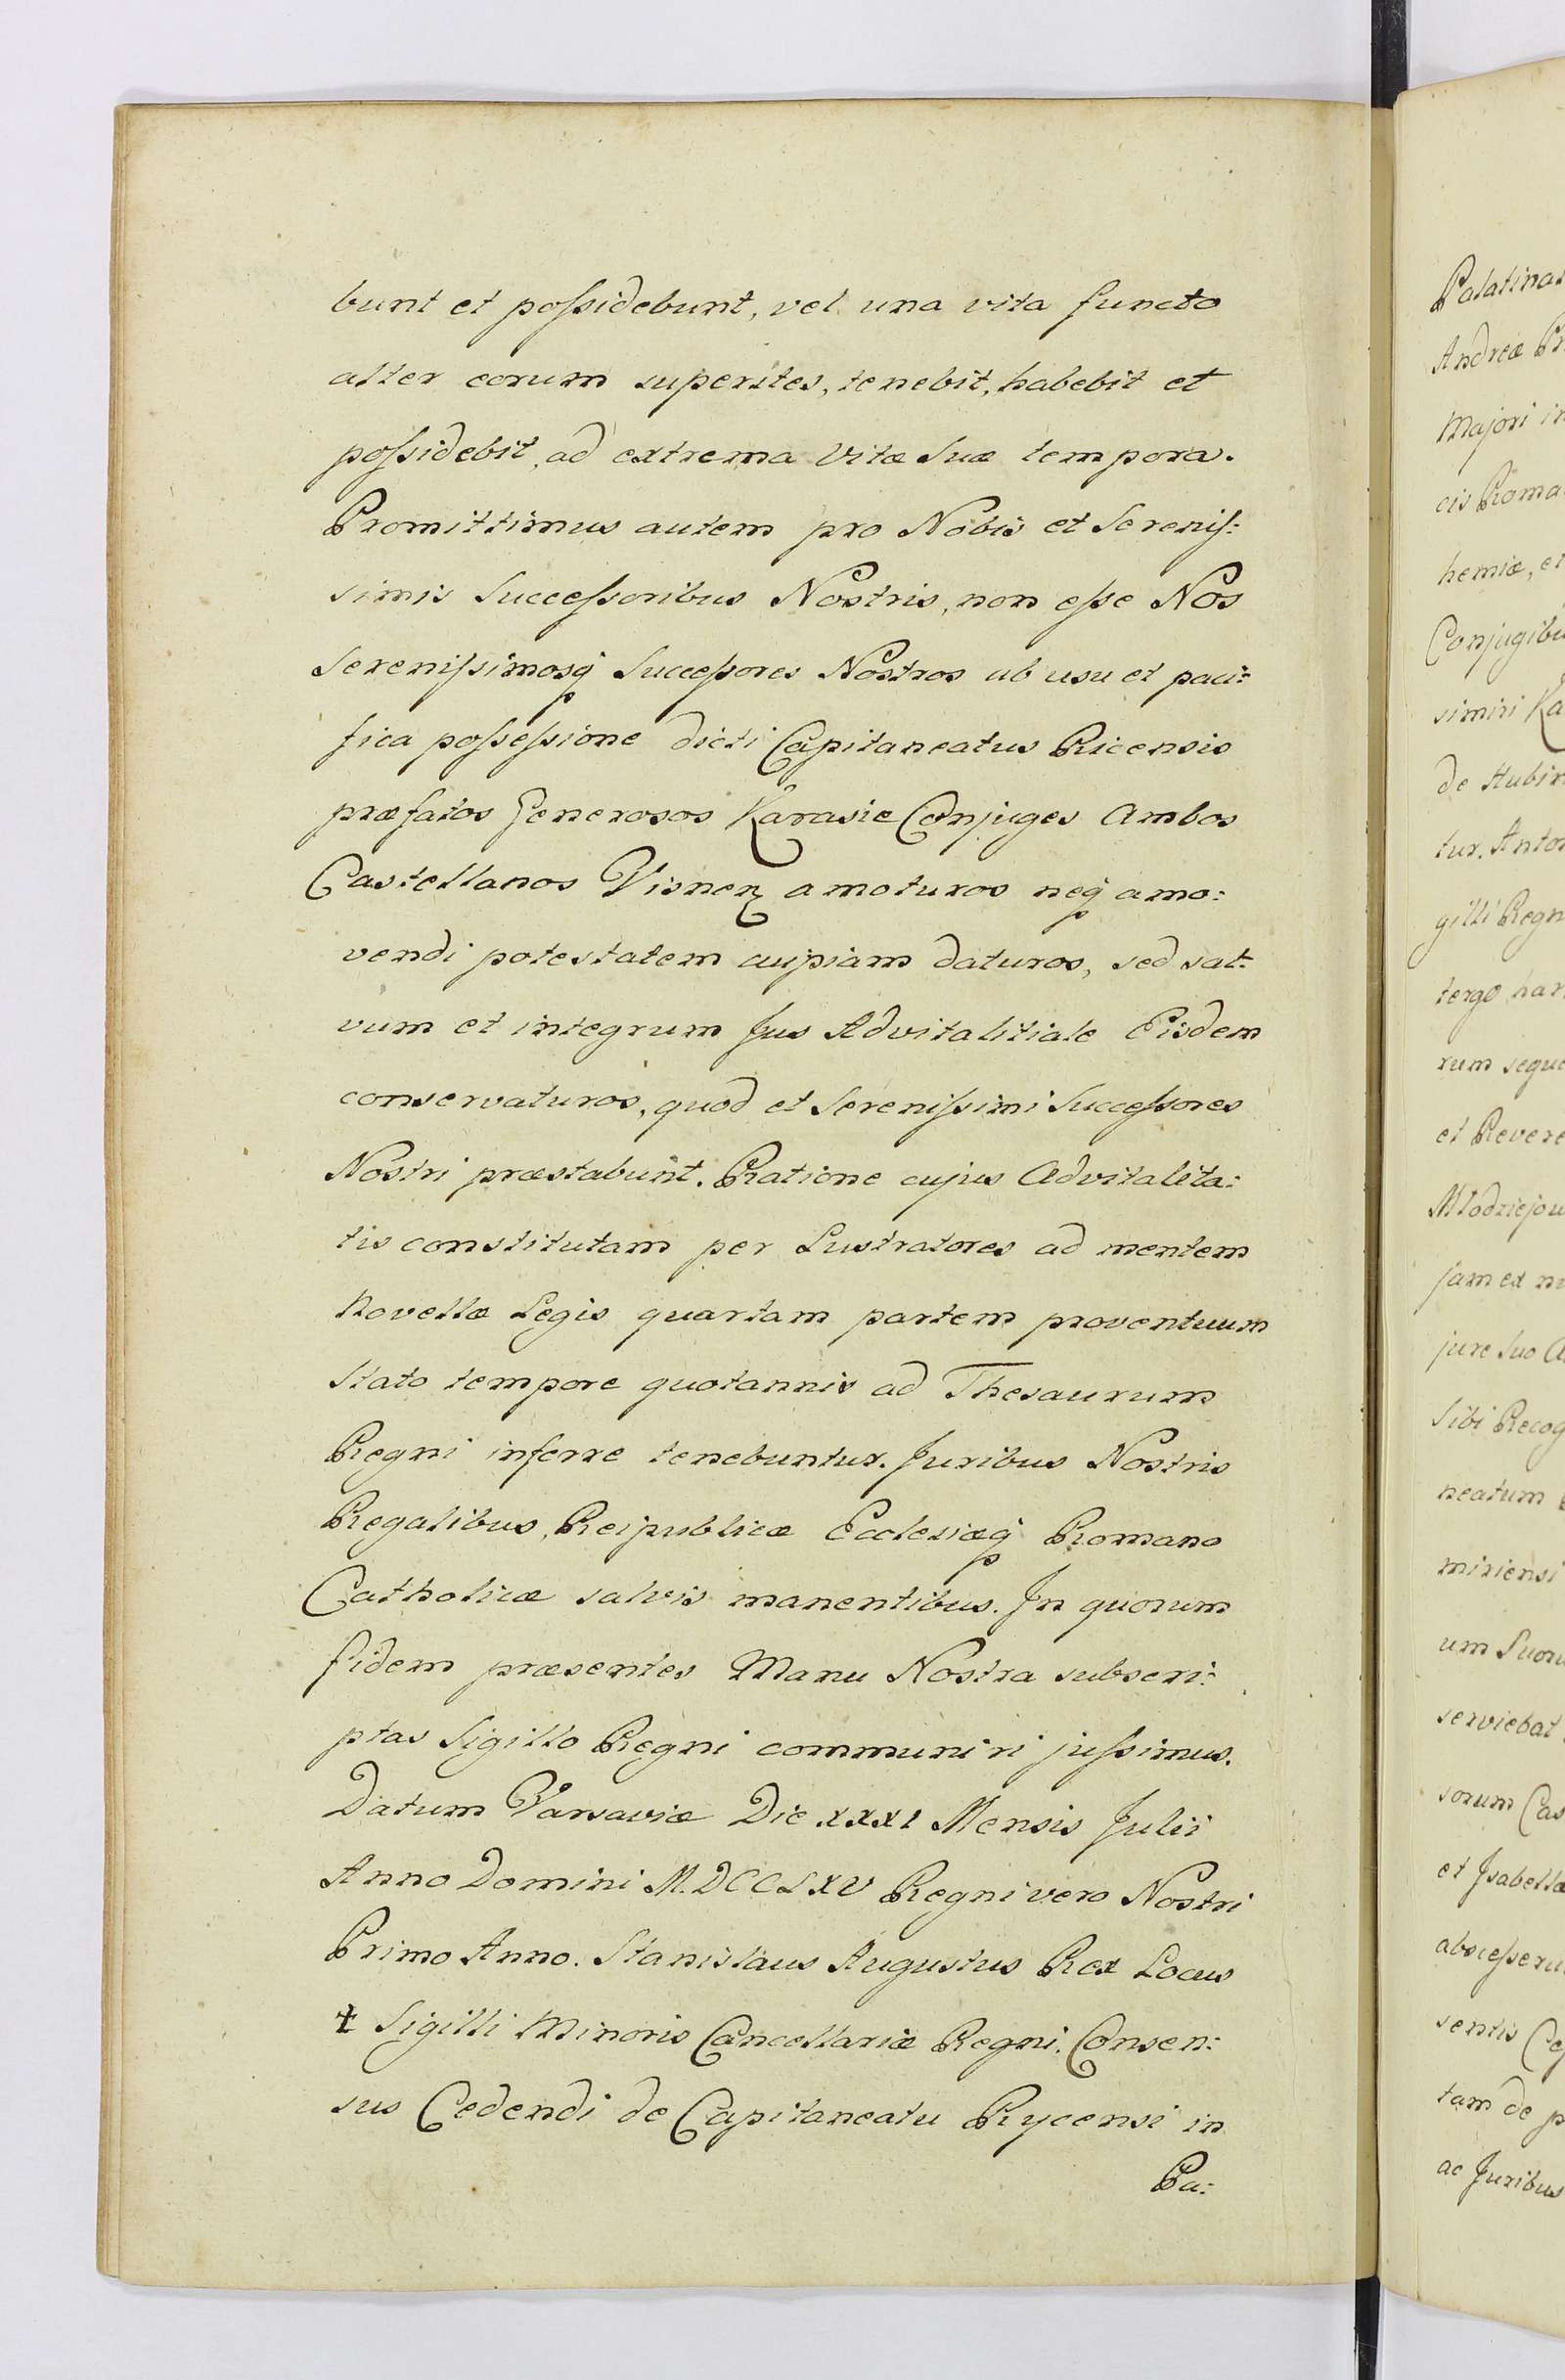 bunt et poſsidebunt, vel una vita functo
alter eorum superstes, tenebit, habebit et
poſsidebit, ad extrema Vitæ Suæ tempora.
Promittimus autem pro Nobis et Sereniſ:
simis Succeſsoribus Nostris, non eſse Nos
Sereniſsimosq̢ Succeſsores Nostros ab usu et paci:
fica poſseſsione dicti Capitaneatus Ricensis
præfatos Generosos Karasie Conjuges Ambos
Castellanos Visnen̄ amoturos neq̢ amo:
vendi potestatem cuipiam daturos, sed sal:
vum et integrum Jus Advitalitiale Eisdem
conservaturos, quod et Sereniſsimi Succeſsores
Nostri præstabunt. Ratione cujus Advitalita:
tis constitutam per Lustratores ad mentem
Novellæ Legis quartam partem proventuum
Stato tempore quotannis ad Thesaurum
Regni inferre tenebuntur. Juribus Nostris
Regalibus, Reipublicæ Ecclesiæq̢ Romano
Catholicæ salvis manentibus. In quorum
fidem præsentes Manu Nostra subscri:
ptas Sigillo Regni communiri juſsimus.
Datum Varsaviæ Die XXXI Mensis Julii
Anno Domini M.DCCLXV Regni vero Nostri
Primo Anno. Stanislaus Augustus Rex Locus
☩ Sigilli Minoris Cancellariæ Regni. Consen:
sus Cedendi de Capitaneatu Rycensi in
Pa:
Palatinat
Andreæ Pr
Majori in
cis Roma
hemiæ, et
Conjugibu
simiri Ka
de Hubin
tur. Anton
gilli Regn
tergo har
rum seque
et Revere
Młodziejow
jam ex m
jure Suo A
Sibi Recog
neatum
miriensi
um Suoru
serviebat
sorum Cas
et Isabellæ
absceſseru
sentis Ceſ
tam de p
ac Juribus